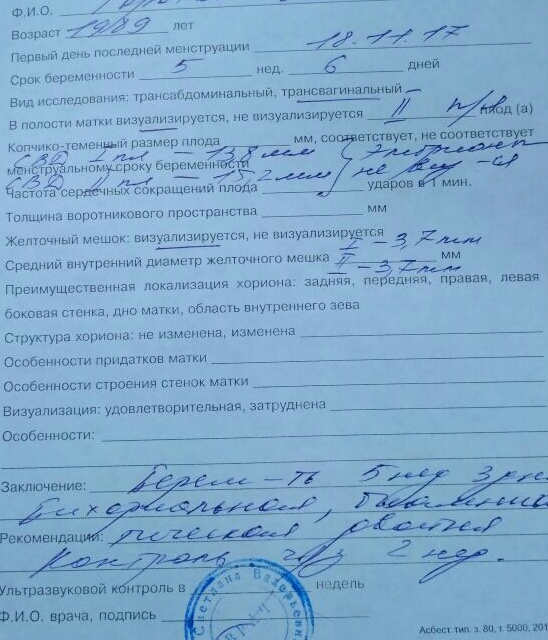 Ф.И.О.
Возраст 1989 лет
Первый день последней менструации 18.11.17
Срок беременности 5 нед. 6 дней
Вид исследования: трансабдоминальный, трансвагинальный
В полости матки визуализируется, не визуализируется II п/я плод (а)
Копчико-теменный размер плода мм, соответствует, не соответствует
СВД I пл – 13,8 мм эмбрионы
менструальному сроку беременности
СВД II пл – 15,2 мм не виз-ся
Частота сердечных сокращений плода ударов в 1 мин.
Толщина воротникового пространства мм
Желточный мешок: визуализируется, не визуализируется
I – 3,7 mm
Средний внутренний диаметр желточного мешка мм
II – 3,7 mm
Преимущественная локализация хориона: задняя, передняя, правая, левая
боковая стенка, дно матки, область внутреннего зева
Структура хориона: не изменена, изменена
Особенности придатков матки
Особенности строения стенок матки
Визуализация: удовлетворительная, затруднена
Особенности:
Заключение: Берем-ть 5 нед 3 дн
Бихориальная, биамнио
Рекомендации: тическая двойня
Контроль чз 2 нед.
Ультразвуковой контроль в недель
Ф.И.О. врача, подпись
Светлана
ВРАЧ
Асбест. тип. з. 80, т. 5000, 201